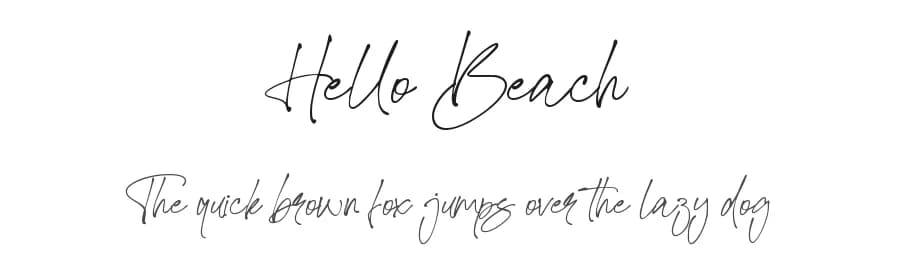 Hello Beach
The quick brown fox jumps over the lazy dog